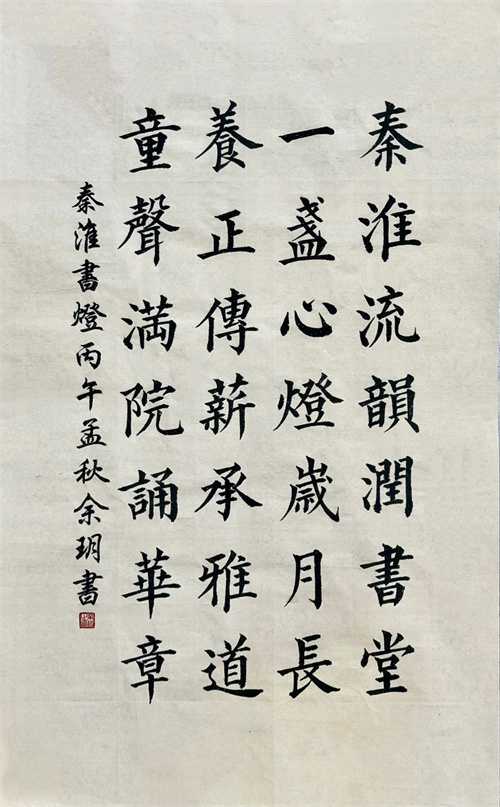 秦淮流韻潤書堂
一盞心燈歲月長
養正傳薪承雅道
童聲满院誦華章
秦淮書燈丙午孟秋余玥書